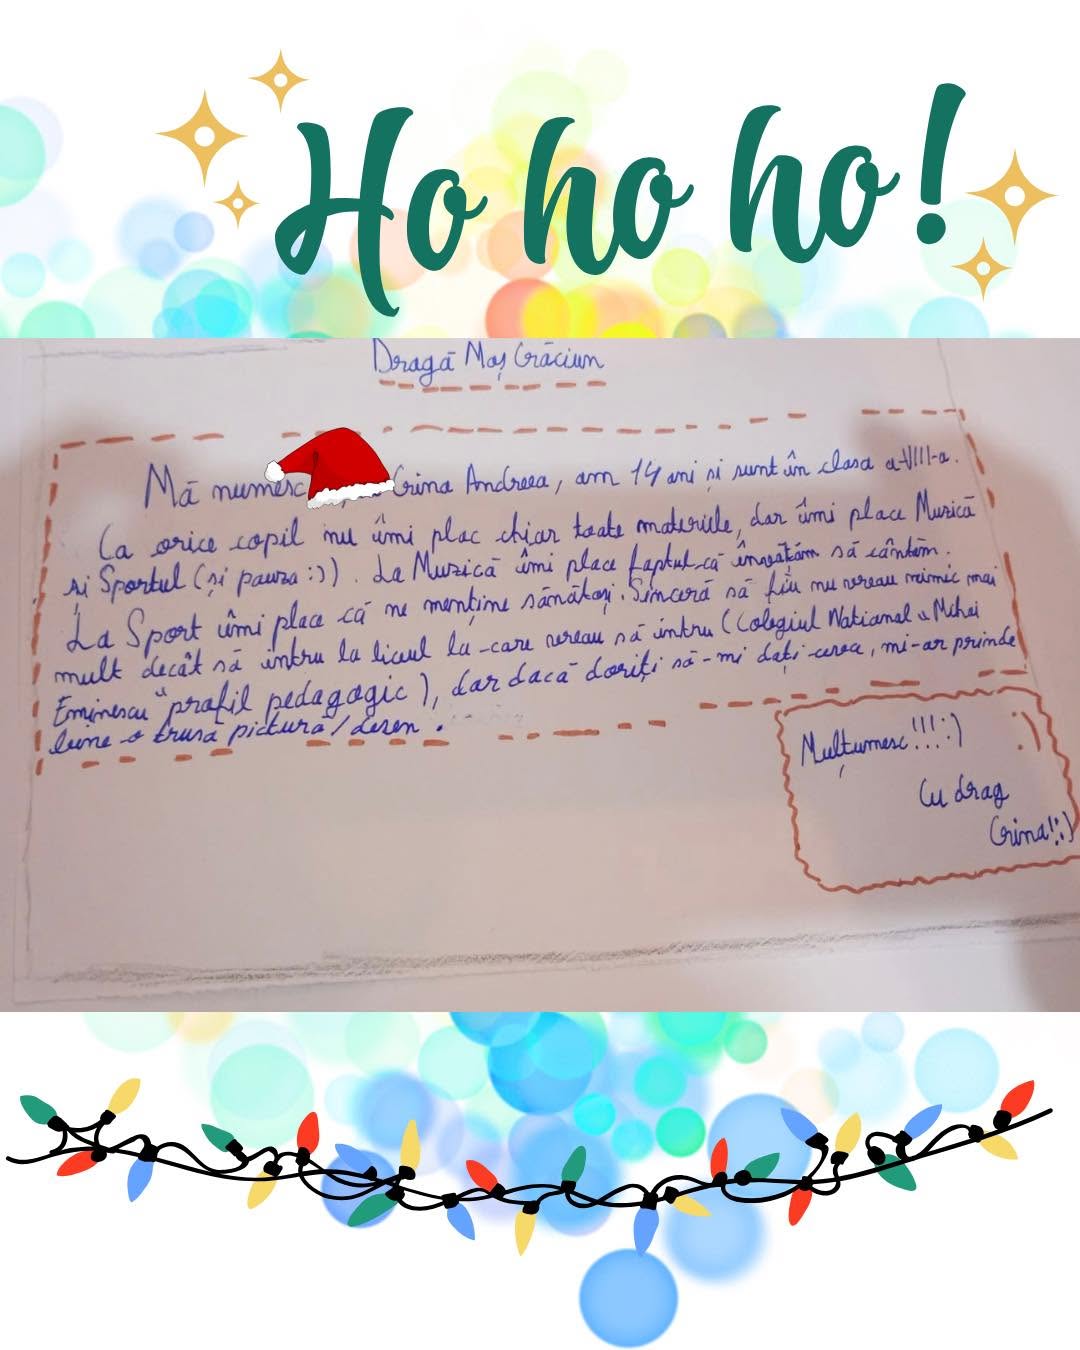 Ho ho ho!
Dragă Moș Crăciun
Mă numesc Crina Andreea, am 14 ani și sunt în clasa a-VIII-a.
Ca orice copil nu îmi plac chiar toate materiile, dar îmi place Muzică
și Sportul (și pauza :)). La Muzică îmi place faptul-că învățăm să cântăm.
La Sport îmi place că ne menține sănătoși. Sinceră să fiu nu vreau nimic mai
mult decât să intru la liceul la-care vreau să intru (Colegiul Național „Mihai
Eminescu“ profil pedagogic), dar dacă doriți să-mi dați ceva, mi-ar prinde
bine o trusă pictură/desen.
Mulțumesc!!! :) :)
Cu drag
Crina! :)